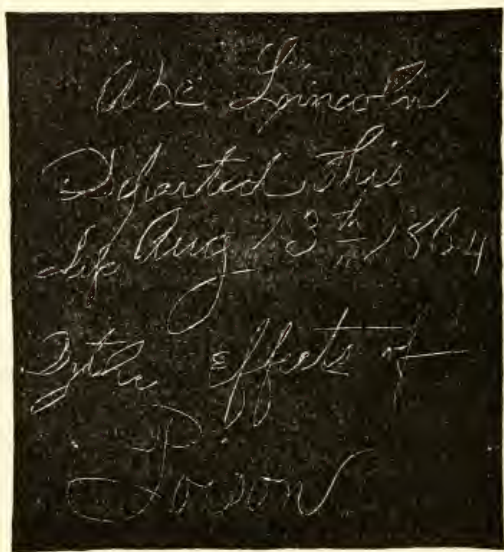 Abe Lincoln
Departed this
life Aug 13th 1864
By the Effects of
Poison